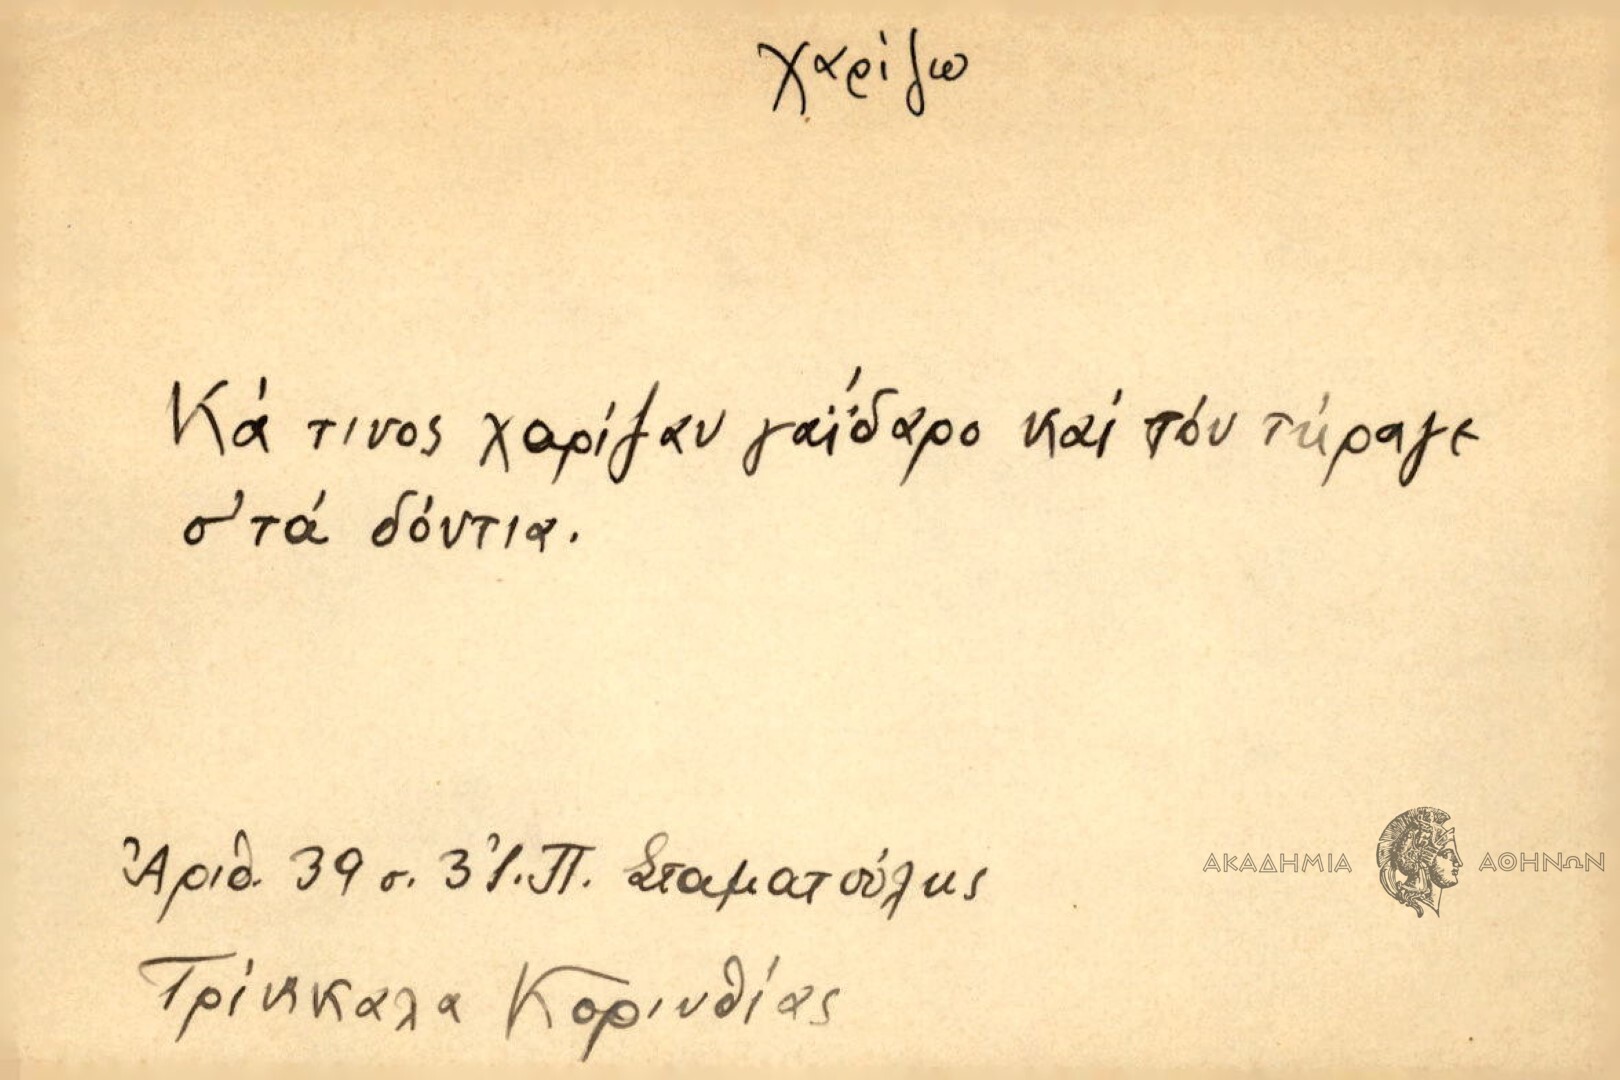 χαρίζω
Κά τινος χαρίζαν γαΐδαρο καί τόν τήραγε
σ' τά δόντια.
Ἀριθ. 39 σ. 3 Ἰ. Π. Σταματούλης
Τρίκκαλα Κορινθίας
ΑΚΑΔΗΜΙΑ ΑΘΗΝΩΝ